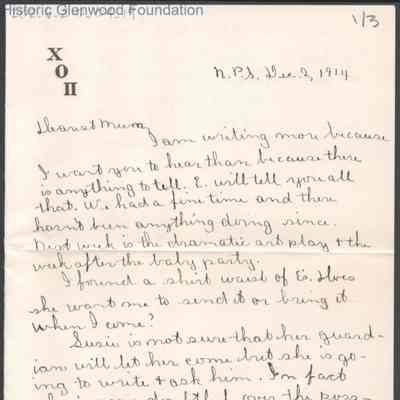 Historic Glenwood Foundation
1/3
X
O
II
N.P.S. Dec. 2, 1914
Dearest Mumz,
I am writing more because
I want you to hear than because there
is anything to tell. E. will tell you all
that. We had a fine time and there
hasn't been anything doing since.
Next week is the dramatic art play & the
week after the baby party.
I found a shirt waist of E's. Does
she want me to send it or bring it
when I come?
Susie is not sure that her guard-
ian will let her come but she is go-
ing to write & ask him. In fact
over the poss-